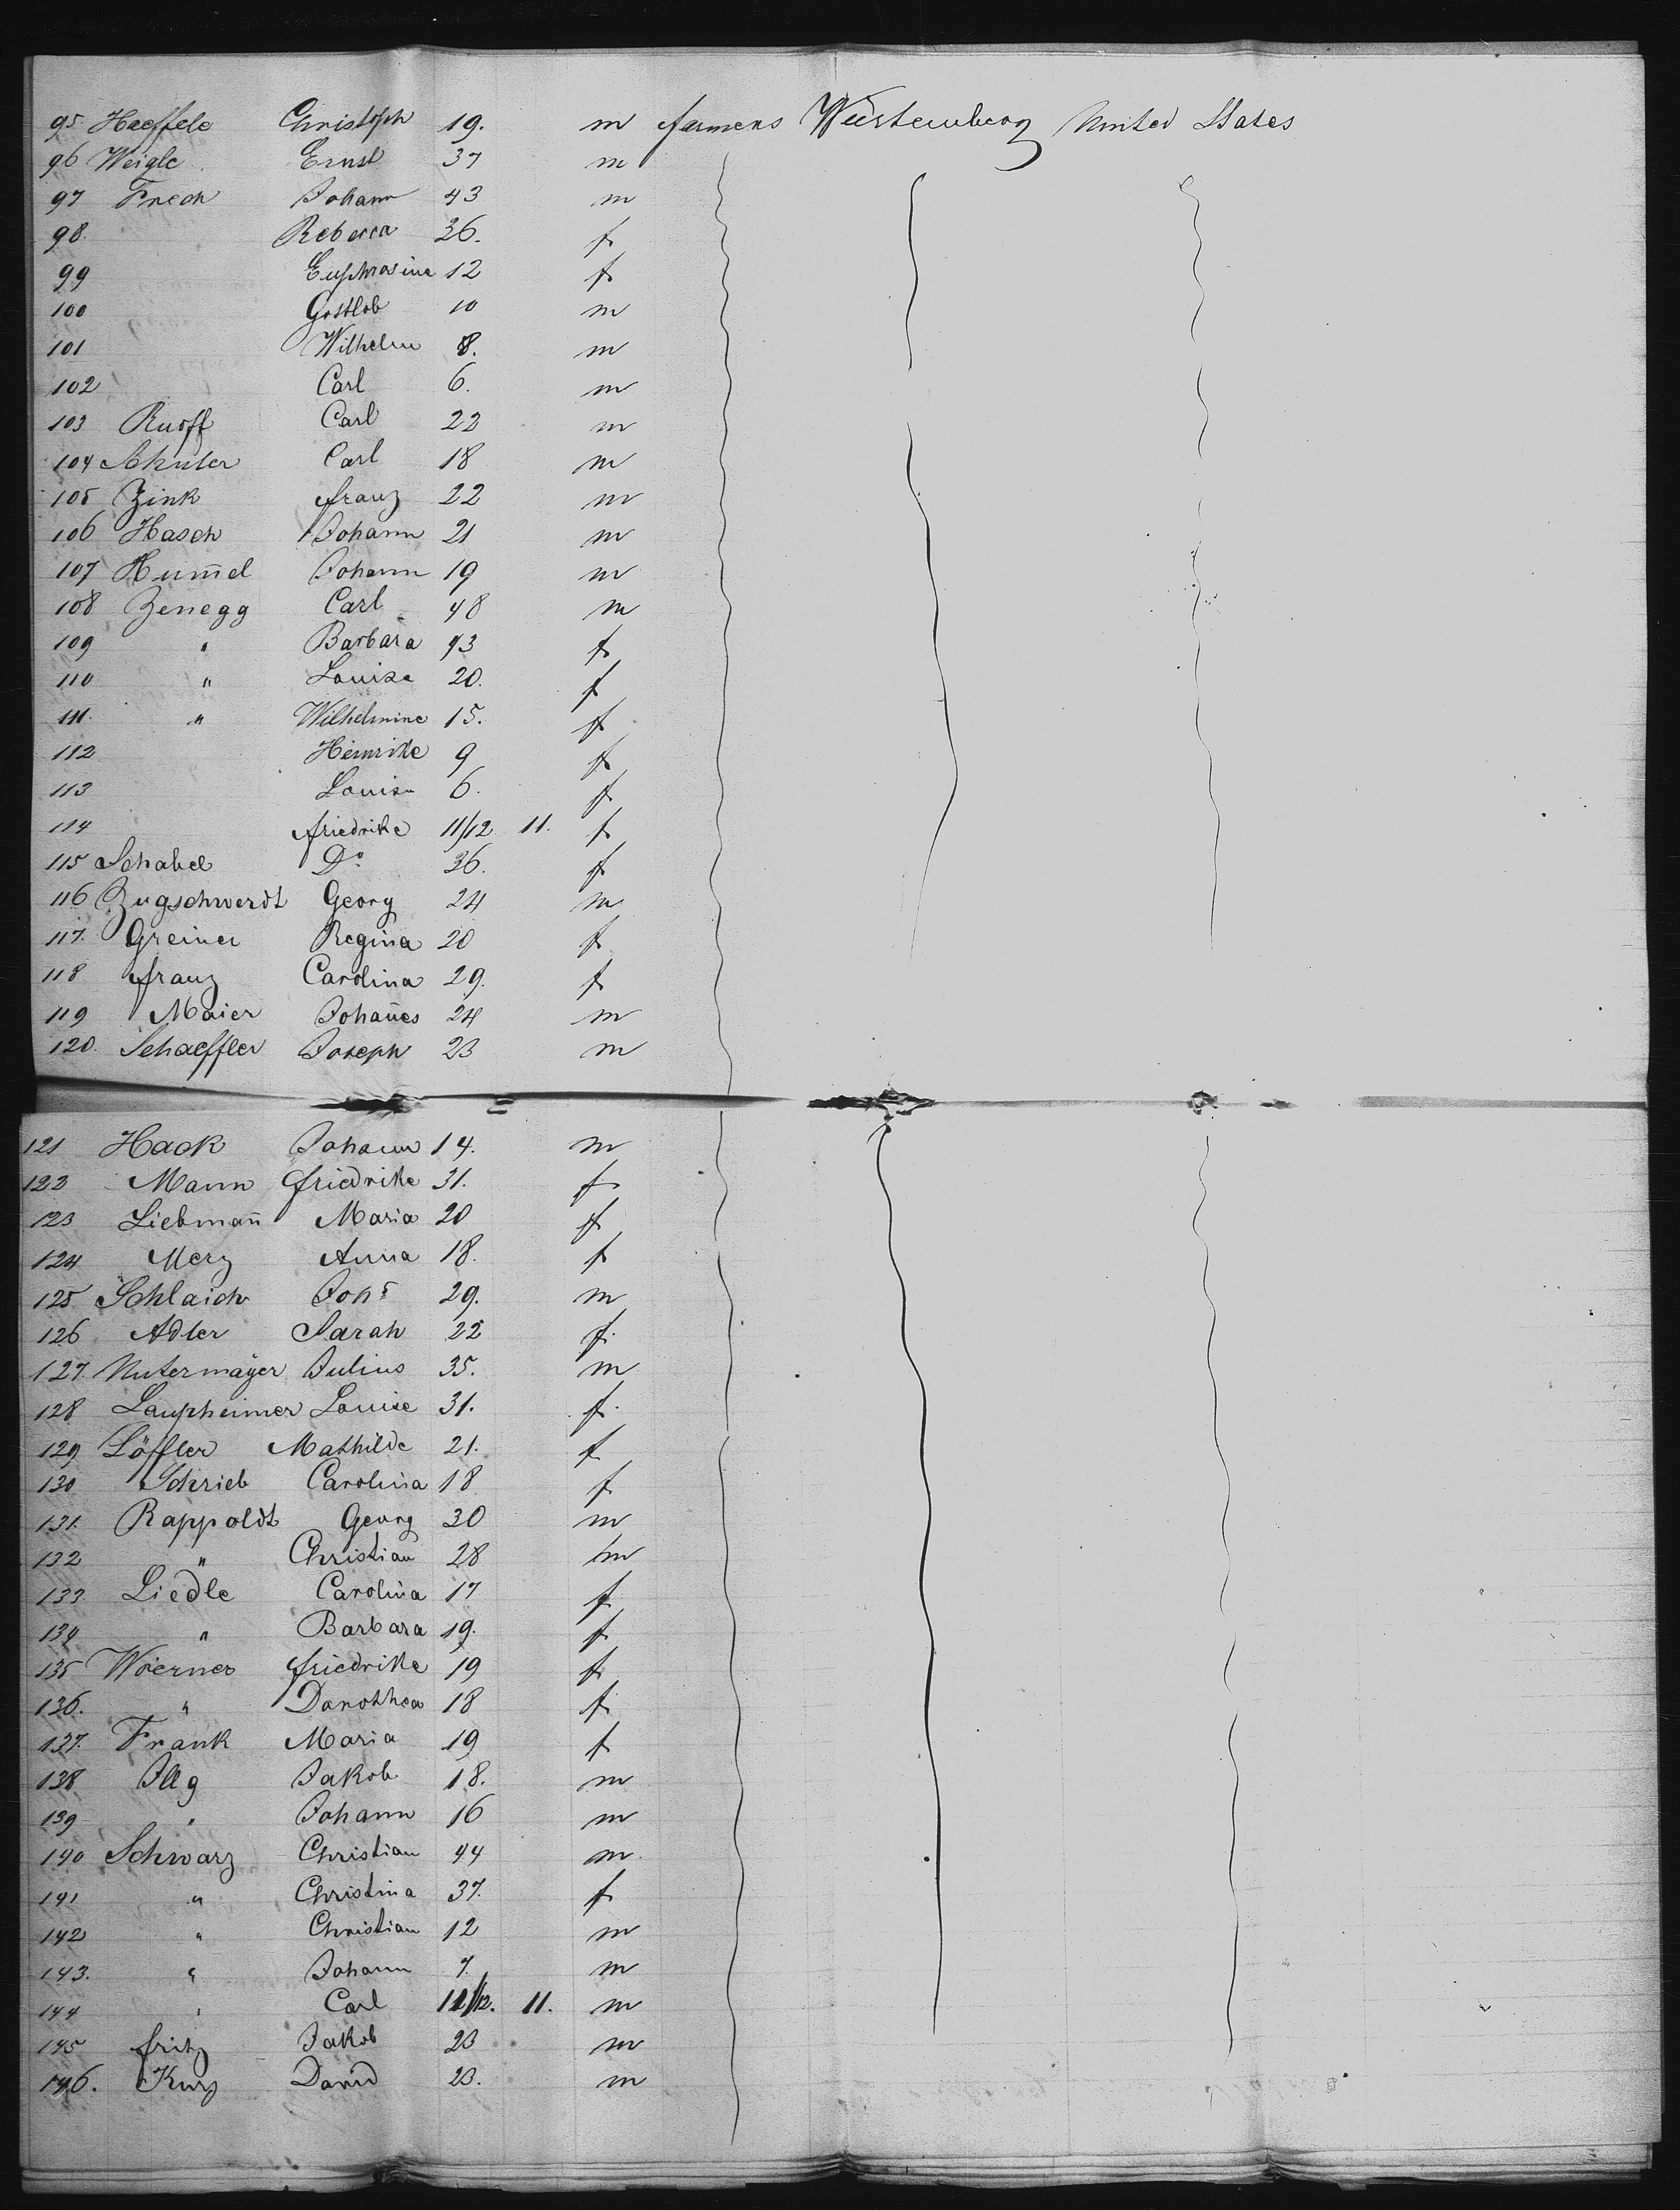 95. Haeffele Christoph 19. m farmers Würtemberg United States
96 Weigle Ernst 37 m
97 Frech Johann 43 m
98. Rebecca 36. f
99 Euphrosine 12 f
100 Gottlob 10 m
101 Wilhelm 8. m
102 Carl 6. m
103 Ruoff Carl 22 m
104 Schuler Carl 18 m
105 Zink Franz 22 m
106 Hasch Johann 21 m
107 Hum̄el Johann 19 m
108 Zenegg Carl 48 m
109 " Barbara 43 f
110 " Louise 20. f
111. " Wilhelmine 15. f
112 Heinrike 9 f
113 Louise 6. f
114 friedrike 11/12 11. f
115 Schabel Do 36. f
116 Zugschwerdt Georg 24 m
117. Greiner Regina 20 f
118 franz Carolina 29. f
119 Maier Johan̄es 24 m
120. Schaeffler Joseph 23 m
121 Hack Johann 14. m
122 Mann friedrike 31. f
123 Liebman̄ Maria 20 f
124 Merz Anna 18. f
125 Schlaich Johs 29. m
126 Adler Sarah 22 f.
127. Untermayer Julius 35. m
128 Laupheimer Louise 31. f.
129 Löffler Mathilde 21. f
130 Schrieb Carolina 18 f
131. Rappoldt Georg 30 m
132 " Christian 28 m
133 Liedle Carolina 17 f
134 " Barbara 19. f
135 Woerner friedrike 19 f
136. " Dorothea 18 f
137. Frank Maria 19 f
138 Illg Jakob 18. m
139 " Johann 16 m
140 Schwarz Christian 44 m.
141 " Christina 37. f
142 " Christian 12 m
143. " Johann 7. m
144 " Carl 11/12. 11. m
145 fritz Jakob 23 m
146. Kurz David 23. m